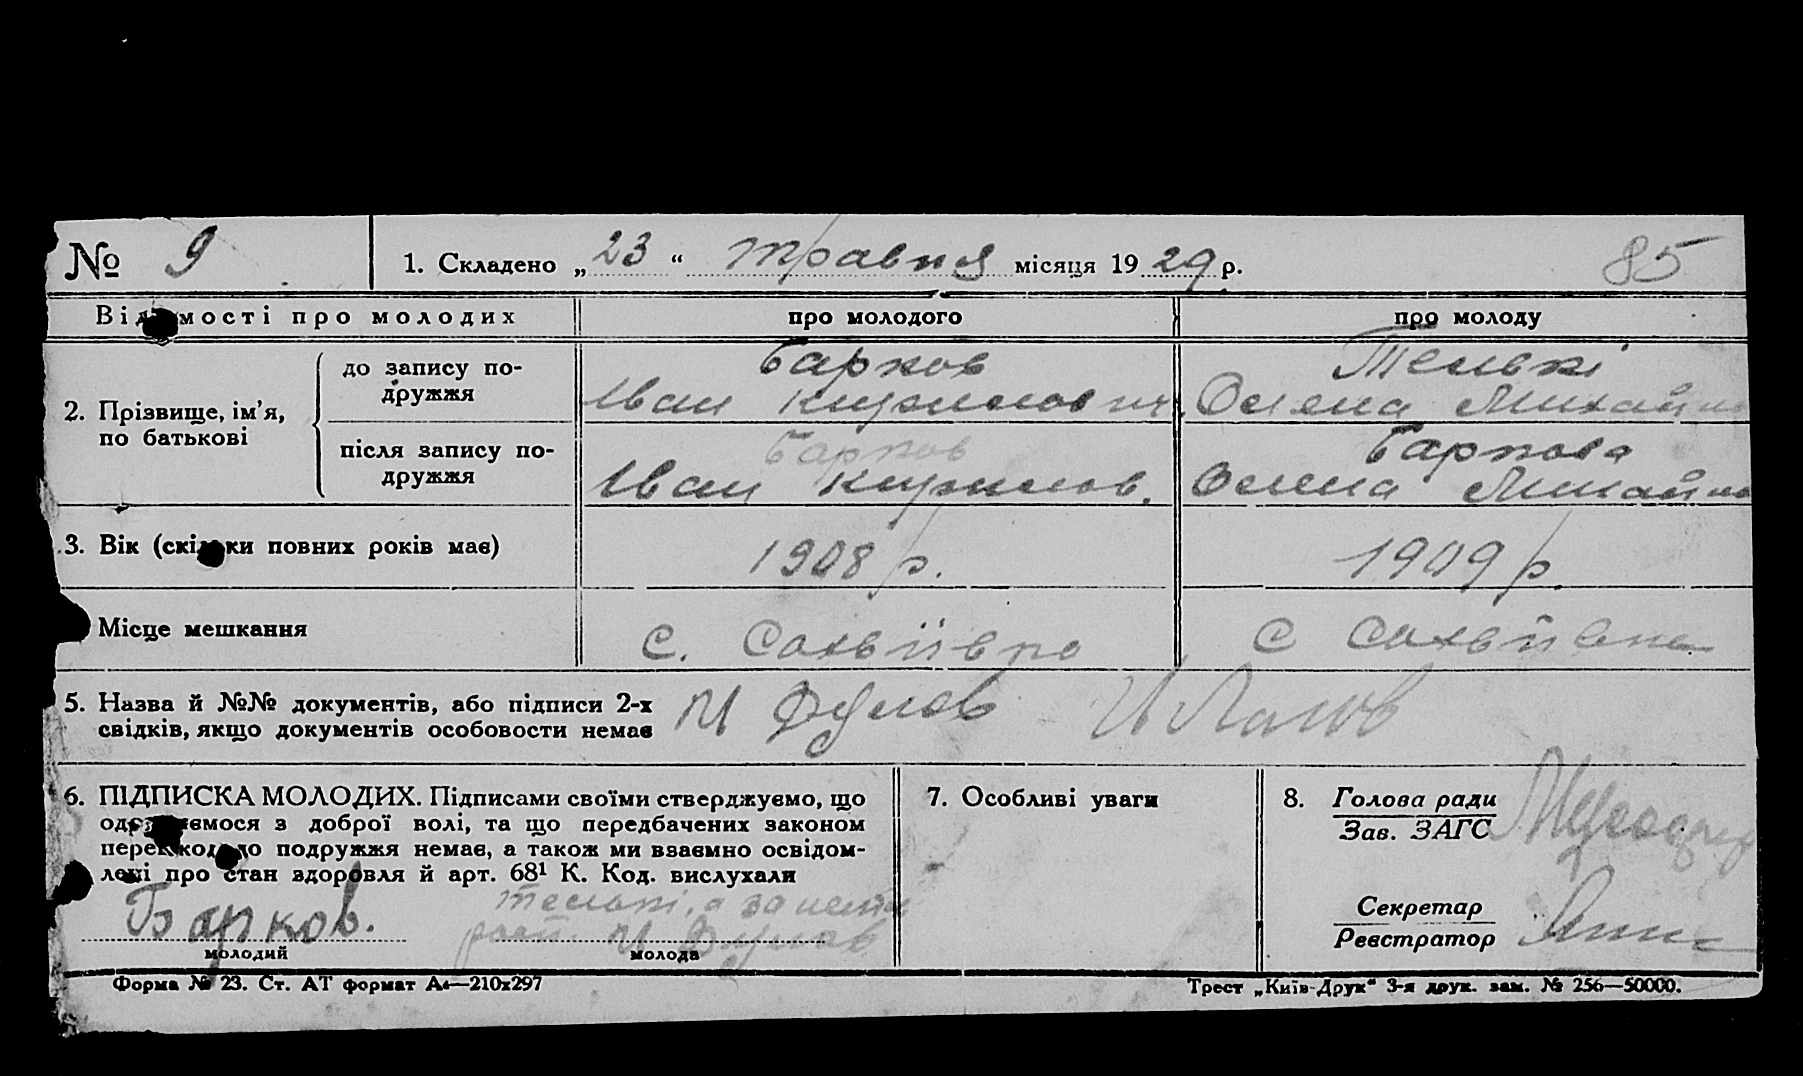 № 9
1. Складено „ 23 “ травня місяця 19 29 р.
85
Відомості про молодих
про молодого
про молоду
2. Прізвище, ім’я,
по батькові
до запису по-
дружжя
Барков
Иван Кирилович
Олена Михайл
після запису по-
дружжя
Барков
Иван Кирилов.
Баркова
Олена Михайл
3. Вік (скільки повних років має)
1908 р.
1909 р
Місце мешкання
с.
с
5. Назва й №№ документів, або підписи 2-х
свідків, якщо документів особовости немає
6. ПІДПИСКА МОЛОДИХ. Підписами своїми стверджуємо, що
одружуємося з доброї волі, та що передбачених законом
перешкод до подружжя немає, а також ми взаємно освідом-
лені про стан здоровля й арт. 68¹ К. Код. вислухали
Барков.
молодий
молода
7. Особливі уваги
8. Голова ради
Зав. ЗАГС
Секретар
Реєстратор
Форма № 23. Ст. АТ формат А₄—210x297
Трест „Київ-Друк“ 3-я друк. зам. № 256—50000.